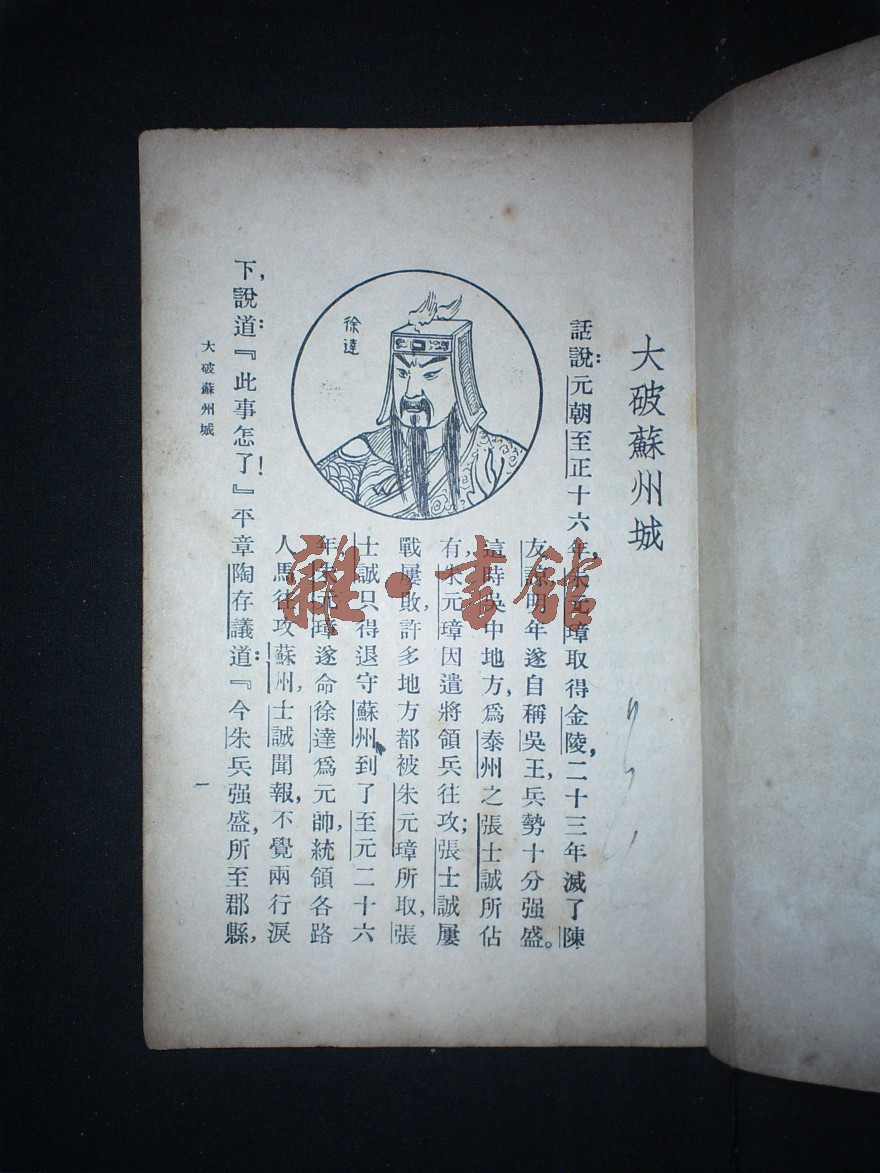 大破蘇州城
話說：元朝至正十六年，朱元璋取得金陵，二十三年滅了陳
友諒，明年遂自稱吳王，兵勢十分强盛。
這時吳中地方，爲泰州之張士誠所佔
有，朱元璋因遣將領兵往攻；張士誠屢
戰屢敗，許多地方都被朱元璋所取，張
士誠只得退守蘇州。到了至元二十六
年，朱元璋遂命徐達爲元帥，統領各路
人馬往攻蘇州，士誠聞報，不覺兩行淚
下，說道：『此事怎了！』平章陶存議道：『今朱兵强盛，所至郡縣，
徐達
大破蘇州城
一
雜·書館